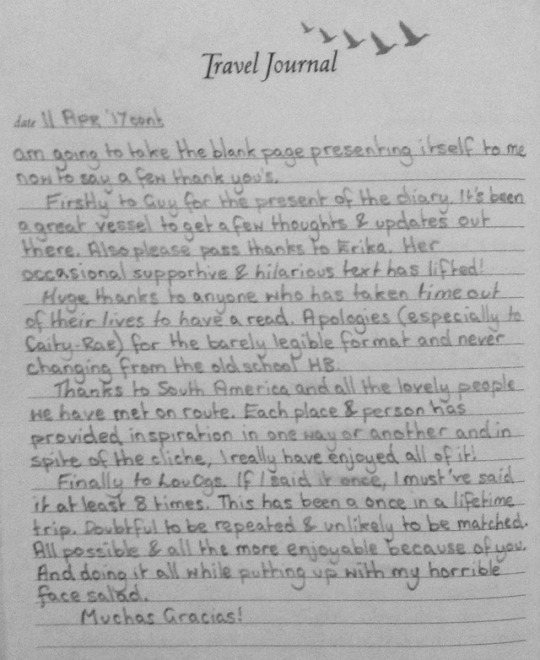 Travel Journal
date 11 APR '17 cont
am going to take the blank page presenting itself to me
now to say a few thank you's.
Firstly to Guy for the present of the diary. It's been
a great vessel to get a few thoughts & updates out
there. Also please pass thanks to Erika. Her
occasional supportive & hilarious text has lifted!
Huge thanks to anyone who has taken time out
of their lives to have a read. Apologies (especially to
Caity-Rae) for the barely legible format and never
changing from the old school HB.
Thanks to South America and all the lovely people
we have met on route. Each place & person has
provided inspiration in one way or another and in
spite of the cliche, I really have enjoyed all of it!
Finally to LouOgs. If I said it once, I must've said
it at least 8 times. This has been a once in a lifetime
trip. Doubtful to be repeated & unlikely to be matched.
All possible & all the more enjoyable because of you.
And doing it all while putting up with my horrible
face salad.
Muchas Gracias!